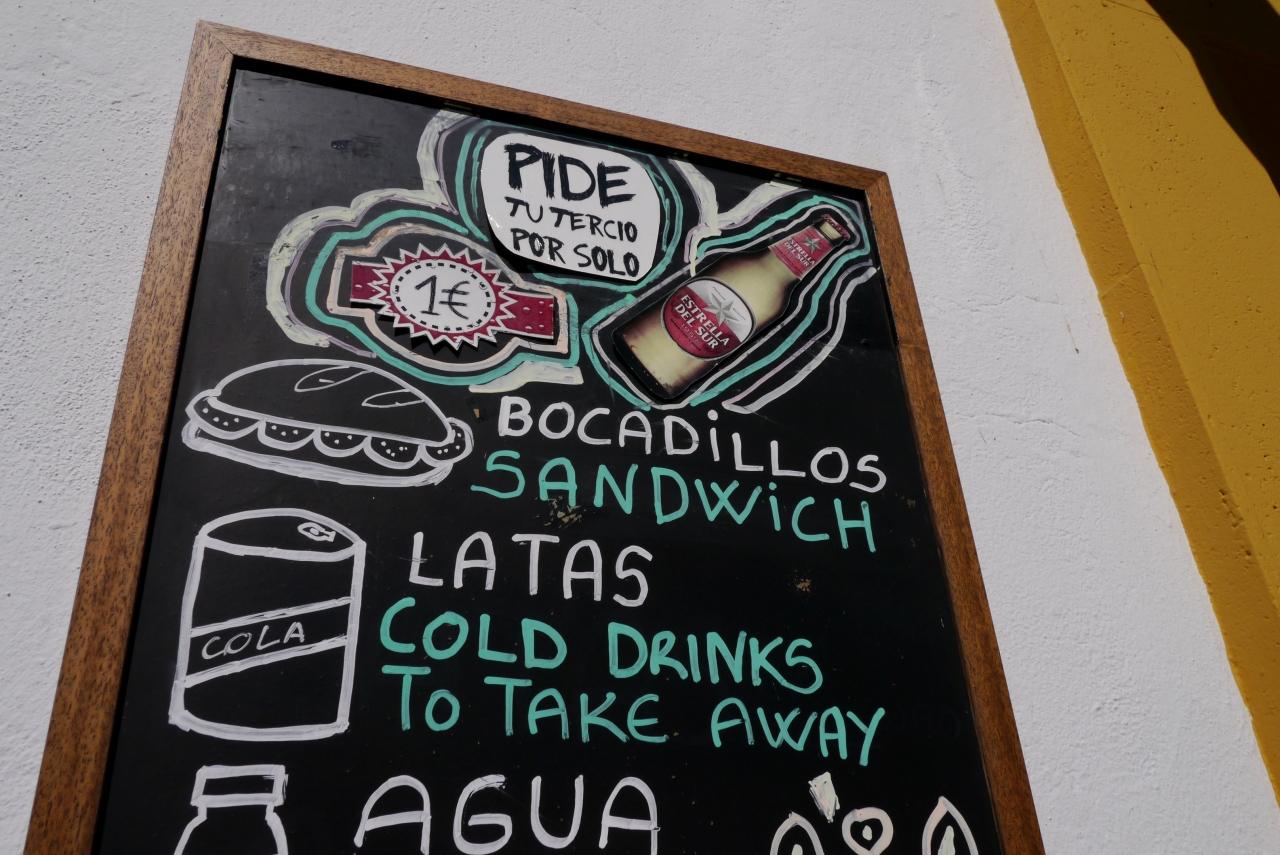 PIDE
TU TERCIO
POR SOLO
1€
ESTRELLA
DEL SUR
ESTRELLA
DEL SUR
BOCADILLOS
SANDWICH
LATAS
COLA
COLD DRINKS
TO TAKE AWAY
AGUA